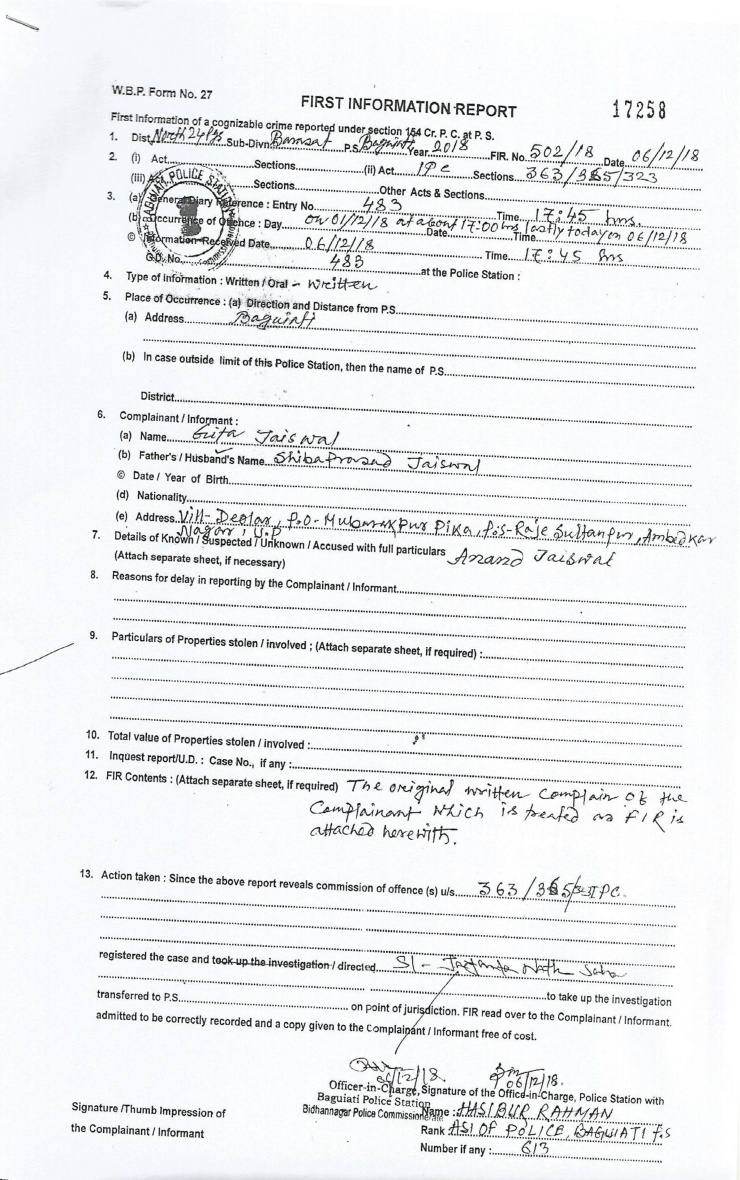 W.B.P. Form No. 27
FIRST INFORMATION REPORT
17258
First Information of a cognizable crime reported under section 154 Cr. P. C. at P. S.
1. Dist. North 24 Pgs Sub-Divn. Barasat P.S. Baguiati Year 2018 FIR. No. 502/18 Date 06/12/18
2. (i) Act Sections (ii) Act IPC Sections 363/365/323
(iii) Sections Other Acts & Sections
3. (a) General Diary Reference : Entry No. 483 Time 17:45 hrs.
(b) Occurrence of Offence : Day on 01/12/18 at about 17:00 hrs lastly today on 06/12/18 Date Time
© Information Received Date 06/12/18 Time 17:45 hrs
G.D. No. 483 at the Police Station :
4. Type of Information : Written / Oral - written
5. Place of Occurrence : (a) Direction and Distance from P.S.
(a) Address Baguiati
(b) In case outside limit of this Police Station, then the name of P.S.
District
6. Complainant / Informant :
(a) Name Gita Jaiswal
(b) Father's / Husband's Name Shibaprasad Jaiswal
© Date / Year of Birth
(d) Nationality
(e) Address Vill- Deolar, P.O- Mubarakpur Pika, P.S- Raje Sultanpur, Ambedkar
Nagar, U.P
7. Details of Known / Suspected / Unknown / Accused with full particulars Anand Jaiswal
(Attach separate sheet, if necessary)
8. Reasons for delay in reporting by the Complainant / Informant
9. Particulars of Properties stolen / involved ; (Attach separate sheet, if required) :
10. Total value of Properties stolen / involved :
11. Inquest report/U.D. : Case No., if any :
12. FIR Contents : (Attach separate sheet, if required) The original written Complain of the
Complainant which is treated as FIR is
attached herewith.
13. Action taken : Since the above report reveals commission of offence (s) u/s. 363/365/ IPC.
registered the case and took up the investigation / directed SI - Nath Saha
to take up the investigation
transferred to P.S. on point of jurisdiction. FIR read over to the Complainant / Informant.
admitted to be correctly recorded and a copy given to the Complainant / Informant free of cost.
06/12/18. 06/12/18.
Officer-in-Charge, Signature of the Officer-in-Charge, Police Station with
Baguiati Police Station
Bidhannagar Police Commissionerate Name : HASIBUR RAHMAN
Signature /Thumb Impression of
Rank ASI OF POLICE, BAGUIATI P.S
the Complainant / Informant
Number if any : 613